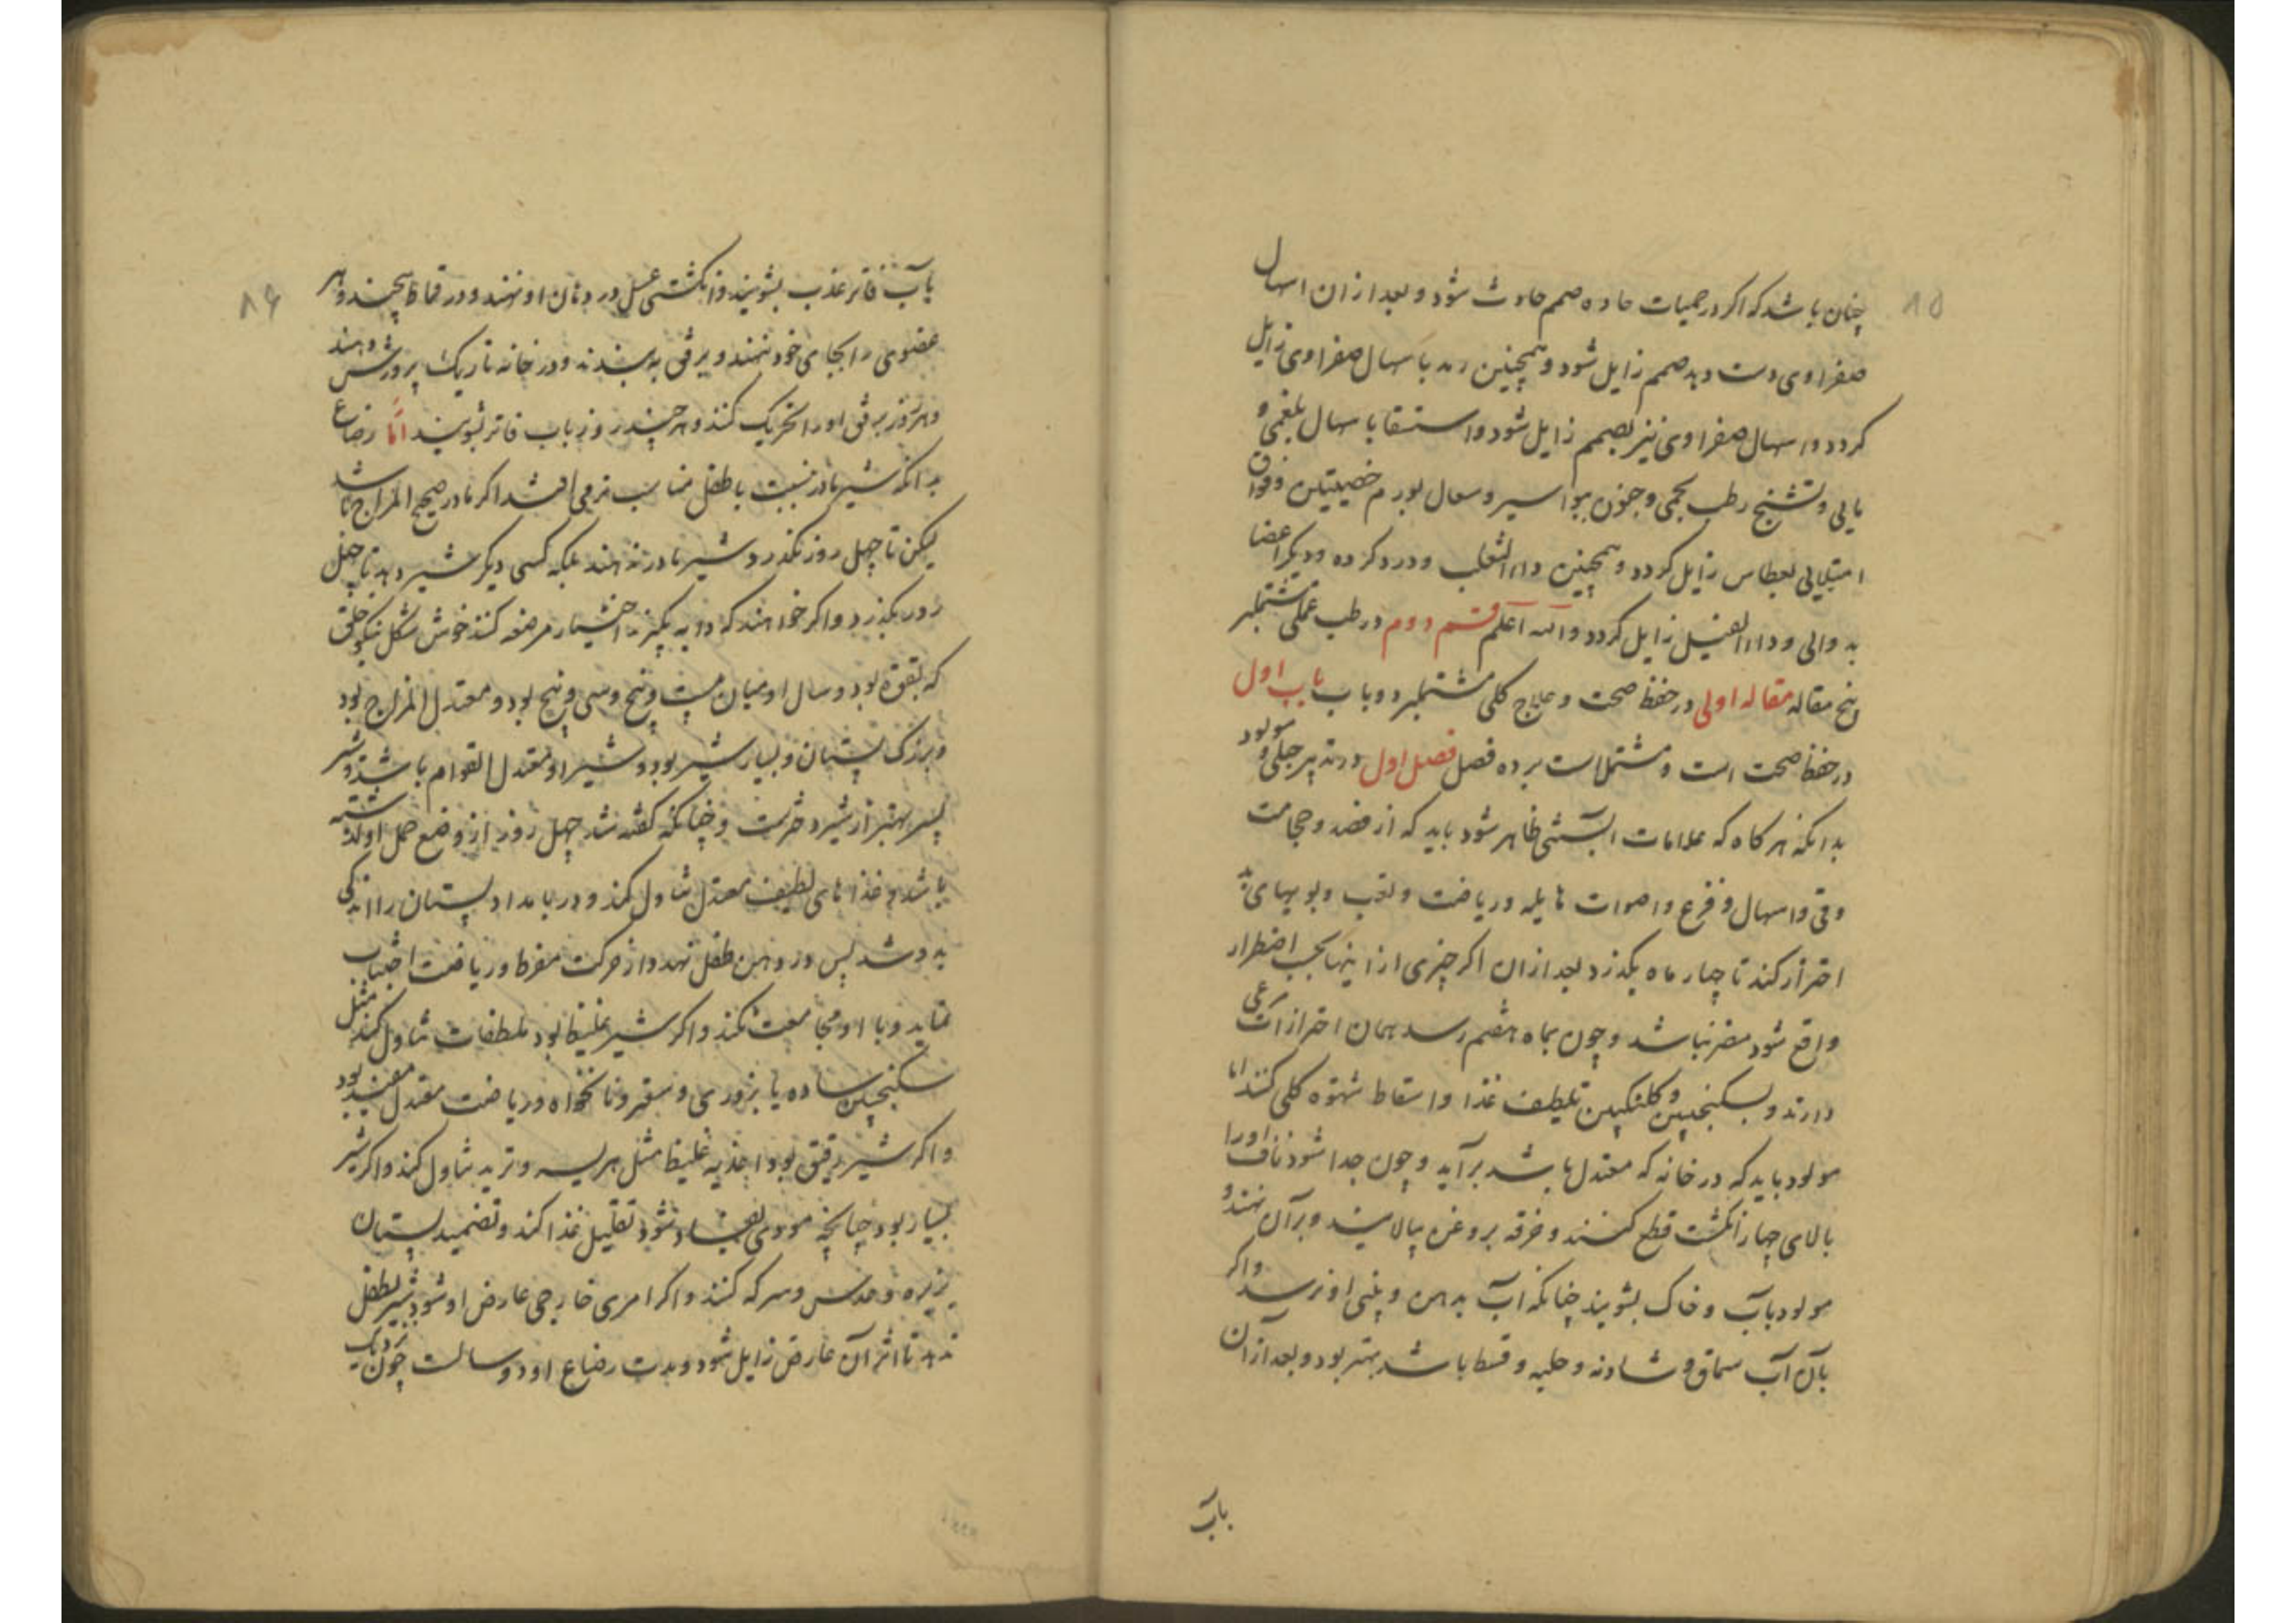 ۸۵
چنان باشد که اکر در حمیات حاده صمم حادث شود و بعد از ان اسهال
صفراوی دست دهد صمم زایل شود و همچنین رمد باسهال صفراوی زایل
کردد و اسهال صفراوی نیز بصمم زایل شود و استسقا باسهال بلغمی و
مایی و تشنج رطب بحمی و جنون ببواسیر و سعال بورم خصیتین و فواق
امتلایی بعطاس زایل کردد و همچنین داء الثعلب و درد کرده و دیکر اعضا
به والی و داء الفیل زایل کردد والله اعلم قسم دوم در طب عملی مشتملبر
پنج مقاله مقاله اولی در حفظ صحت و علاج کلی مشتملبر دو باب باب اول
در حفظ صحت است و مشتملست بر ده فصل فصل اول در تدبیر حبلی و مولود
بدانکه هرکاه که علامات آبستنی ظاهر شود باید که از فصد و حجامت
وقی و اسهال و فزع و اصوات هایله و ریاضت و تعب و بویهای بد
احتراز کند تا چهار ماه بکذرد بعد از ان اکر چیزی از اینها بحسب اضطرار
واقع شود مضر نباشد و چون بماه هفتم رسد همان احترازات مرعی
دارند و بسکنجبین و کلنکبین تلطیف غذا و اسقاط شهوة کلی کنند اما
مولود باید که در خانه که معتدل باشد برآید و چون جدا شود ناف او را
بالای چهار انکشت قطع کنند و خرقه بروغن بیالایند و برآن نهند و
مولود بآب و خاک بشویند چنانکه آب بدهن و بینی او نرسد و اکر
بآن آب سماق و شادنه و حلبه و قسط باشد بهتر بود و بعد ازان
بآب
۸۶
بآب فاتر عذب بشویند و انکشتی عسل در دهان او نهند و در قماط پیچند و هر
عضوی را بجای خود نهند و برفق به بندند و در خانه تاریک پرورش دهند
و هر روز برفق او را تحریک کنند و هر چند روز باب فاتر بشویند امّا رضاع
بدانکه شیر مادر نسبت با طفل مناسب ترمی افتد اکر مادر صحیح المزاج باشد
لیکن تا چهل روز نکذرد شیر مادر ندهند بلکه کسی دیکر شیر دهد تا چهل
روز بکذرد و اکر خواهند که دایه بکیرند اختیار مرضعه کنند خوش شکل نیکو خلق
که بقوة بود و سال او میان بیست و پنج و سی و پنج بود و معتدل المزاج بود
و بزرک پستان و بسیار شیر بود و شیر او معتدل القوام باشد و شیر
پسر بهتر از شیر دخترست و چنانکه کفته شد چهل روز از وضع حمل او کذشته
باشد و غذاهای لطیف معتدل تناول کند و در بامداد پستان را اندکی
بدوشد پس در دهن طفل نهد و از حرکت مفرط و ریاضت اجتناب
نماید و با او مجامعت نکند و اکر شیر غلیظ بود ملطفات تناول کند مثل
سکنجبین ساده یا بزوری و سعتر و نانخواه و ریاضت معتدل مفید بود
و اکر شیر رقیق بود اغذیه غلیظ مثل هریسه و ترید تناول کند و اکر شیر
بسیار بود چنانچه مودی بفساد شود تقلیل غذا کند و تضمید پستان
بزیره و عدس و سرکه کنند و اکر امری خارجی عارض او شود شیر بطفل
ندهد تا اثر آن عارض زایل شود و مدت رضاع او دو سالست چون نزدیک